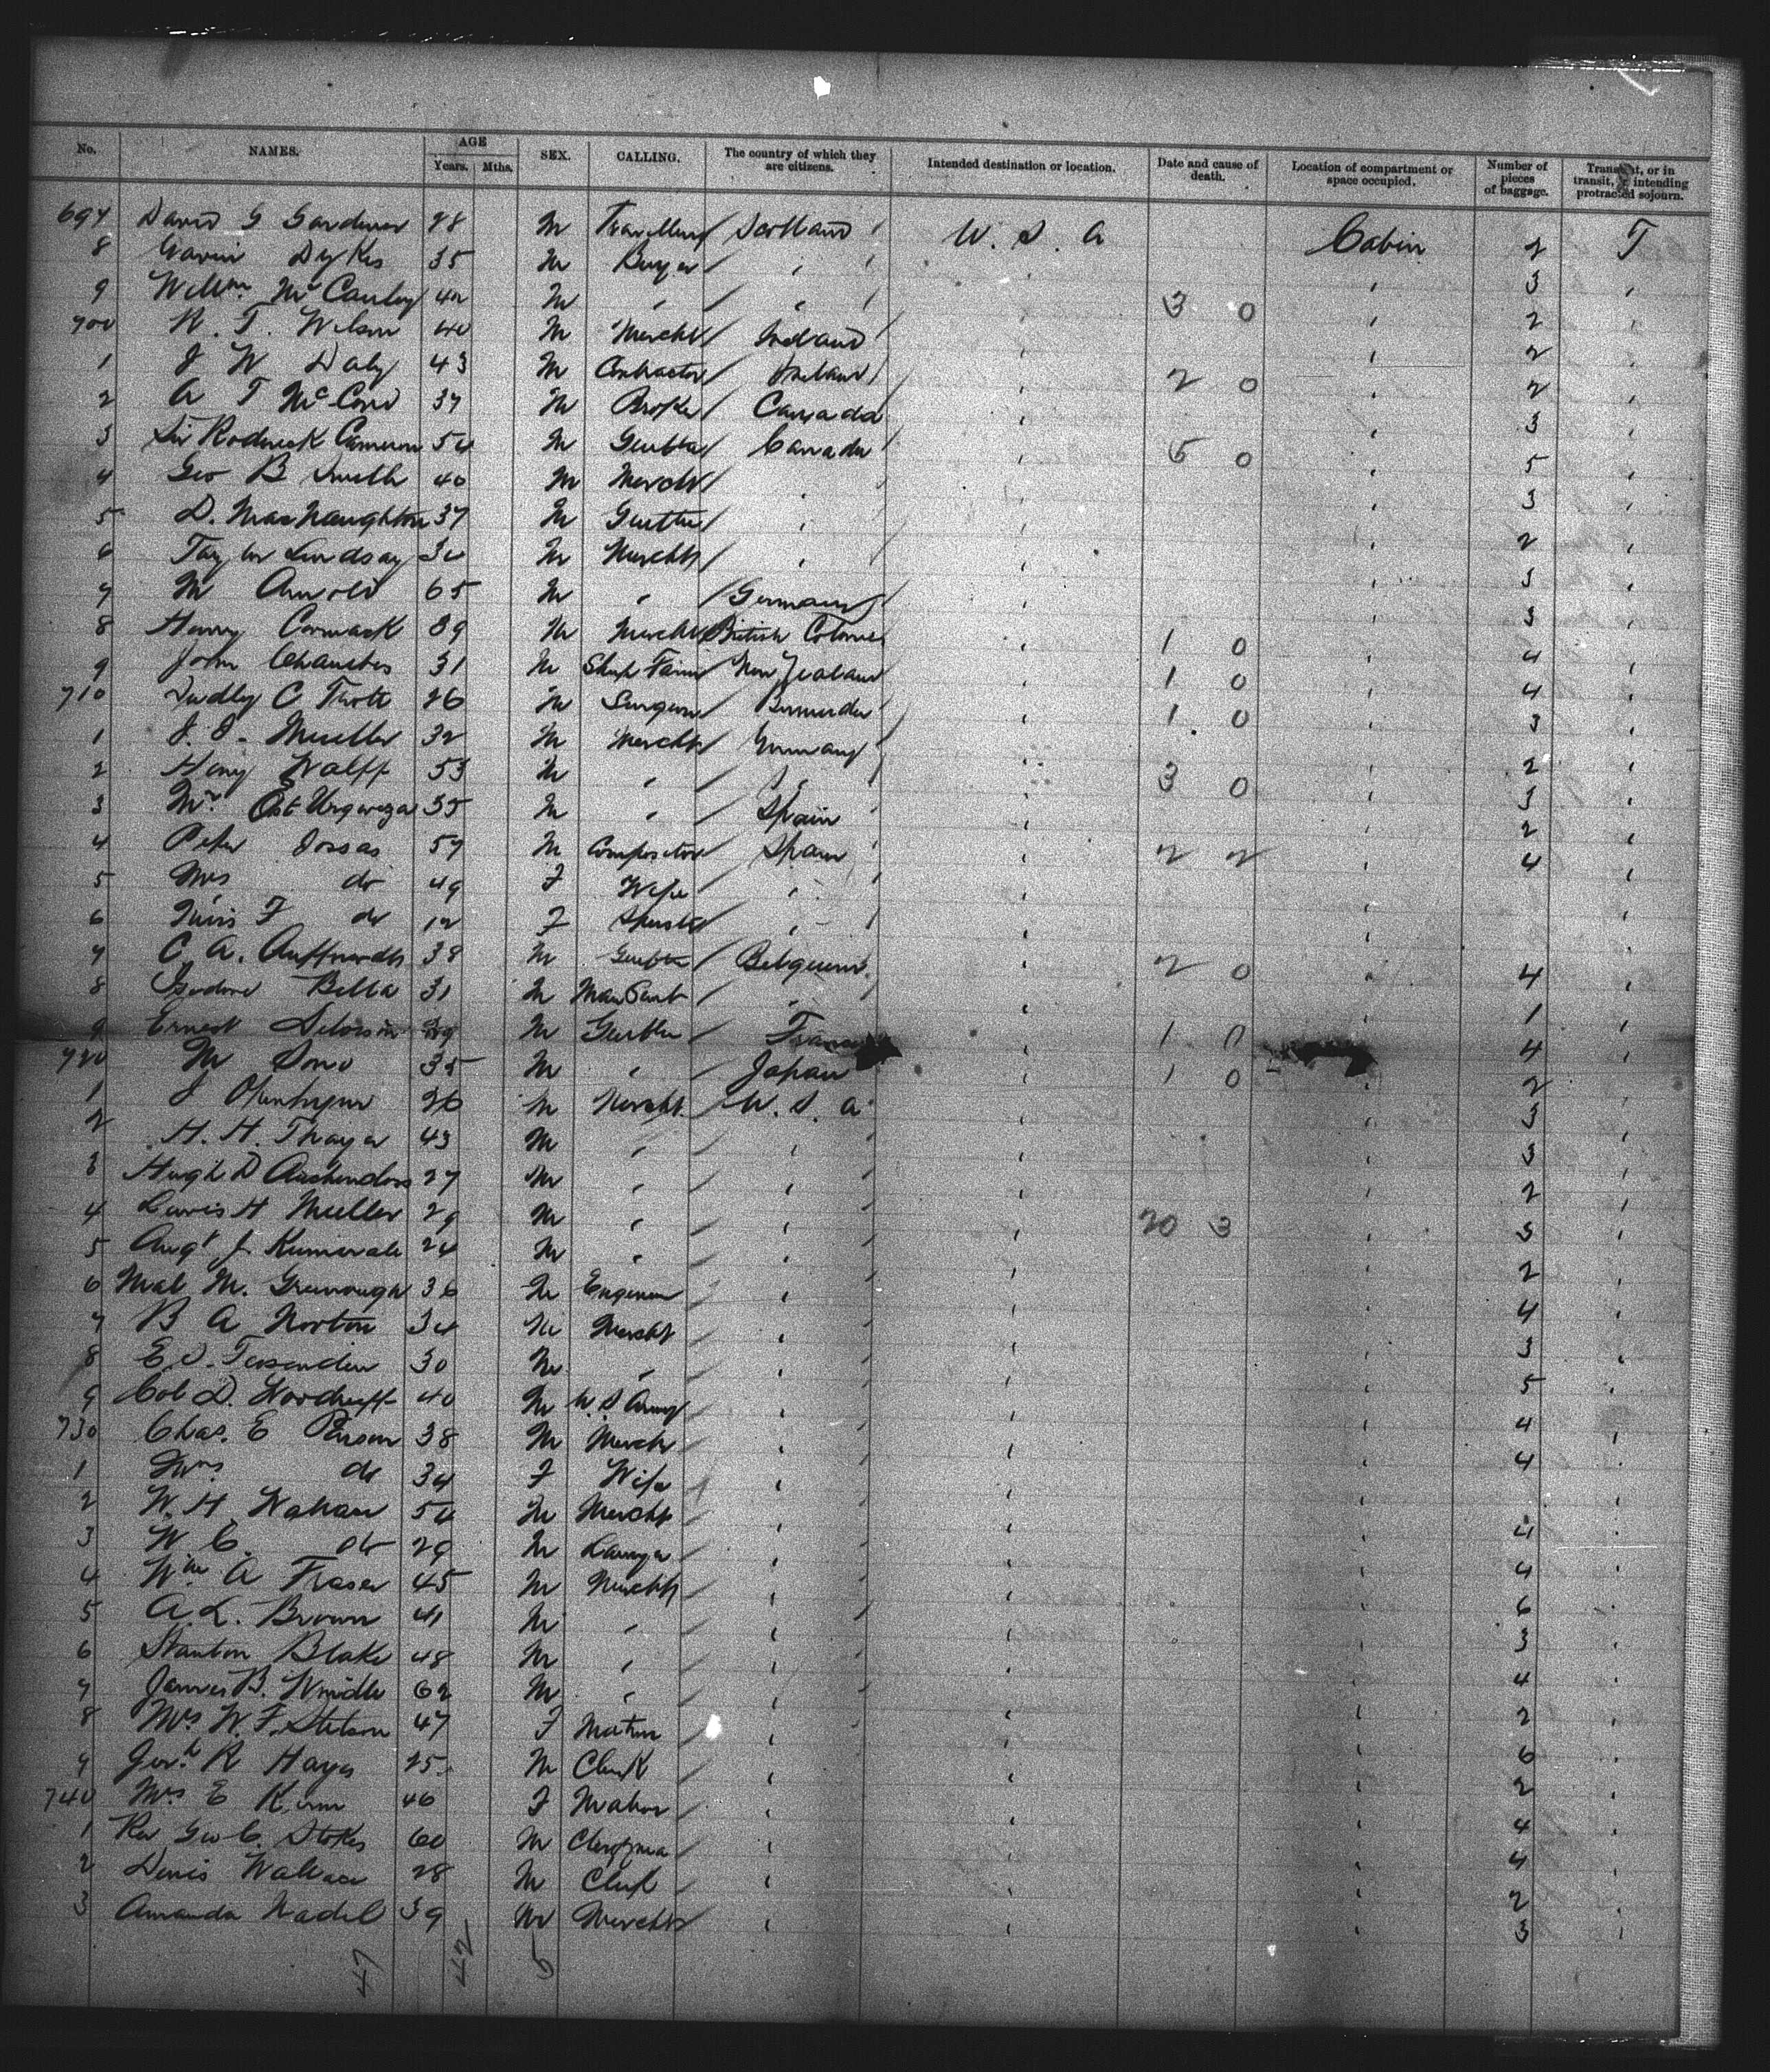 No. NAMES. AGE Years. Mths. SEX. CALLING. The country of which they are citizens. Intended destination or location. Date and cause of death. Location of compartment or space occupied. Number of pieces of baggage. Transient, or in transit, or intending protracted sojourn.
697 David G Gardner 28 M Traveller Scotland U. S. A Cabin 2 T
8 Gavin Dykes 35 M Buyer " " " 3 "
9 Willm McCauley 42 M " " " 3 0 " 2 "
700 N. T. Wilson 40 M Mercht " " 2 "
1 J W Daly 43 M Contractor Ireland " 2 0 " 2 "
2 A T McCord 37 M Broker Canada " " 3 "
3 Sir Roderick Cameron 54 M Gentle Canada " 5 0 " 5 "
4 Geo B Smith 40 M Mercht " " " 3 "
5 D. MacNaughton 37 M Gentle " " " 2 "
6 Taylor Lindsay 30 M Mercht " " " 3 "
7 M Arnold 65 M " Germany " " 3 "
8 Harry Cormack 39 M Mercht British Colonies " 1 0 " 4 "
9 John 31 M Sheep Farmer New Zealand " 1 0 " 4 "
710 Dudley C Trott 26 M Surgeon Bermuda " 1 0 " 3 "
1 Mueller 32 M Mercht Germany " " 2 "
2 Heny Wolff 53 M " " " 3 0 " 3 "
3 Mr 35 M " Spain " " 2 "
4 Peter Jossas 57 M Compositor Spain " 2 2 " 4 "
5 Mrs do 49 F Wife " " " "
6 Miss F do 12 F Spinster " " " "
7 C. A. Auffmordt 38 M Gentle Belgium " 2 0 " 4 "
8 Isidore Bella 31 M Man Servt " " " 1 "
9 Ernest M Gentle France " 1 0 4 "
720 M Ono 35 M " Japan " 1 0 " 2 "
1 J 26 M Mercht U. S. A " " 3 "
2 H. H. Thayer 43 M " " " " 3 "
3 Hugh D Auchincloss 27 M " " " " 2 "
4 Lewis H Muller 29 M " " " 20 3 " 3 "
5 Augt J. 24 M " " " " 2 "
6 Mal M. Greenough 36 M Engineer " " " 4 "
7 B A Norton 34 M Mercht " " " 3 "
8 30 M " " " " 5 "
9 Col D. Woodruff 40 M U. S Army " " " 4 "
730 Chas. E Pearson 38 M Mercht " " " 4 "
1 Mrs do 34 F Wife " " " "
2 W. H. 54 M Mercht " " " 4 "
3 W. C. do 29 M Lawyer " " " 4 "
4 Wm A Fraser 45 M Mercht " " " 6 "
5 A. L. Brown 41 M " " " " 3 "
6 Stanton Blake 48 M " " " " 4 "
7 James B. Windle 62 M " " " " 2 "
8 Mrs W. F. Stetson 47 F Matron " " " 6 "
9 R Hayes 25 M Clerk " " " 2 "
740 Mrs E 46 F Matron " " " 4 "
1 Rev Geo C. Stokes 60 M Clergyman " " " 4 "
2 Denis Wallace 28 M Clerk " " " 2 "
3 Amanda Nadil 39 M Mercht " " " 3 "
47 42 5